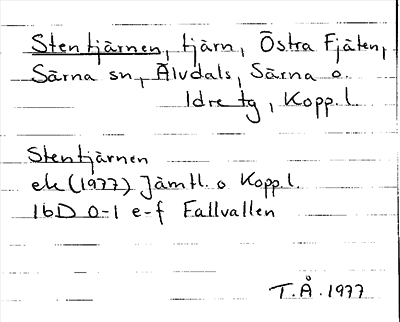 Stentjärnen, tjärn, Östra Fjäten,
Särna sn, Älvdals, Särna o.
Idre tg, Kopp.l.
Stentjärnen
ek (1977) Jämtl. o Kopp.l.
16D 0-1 e-f Fallvallen
T.Å. 1977